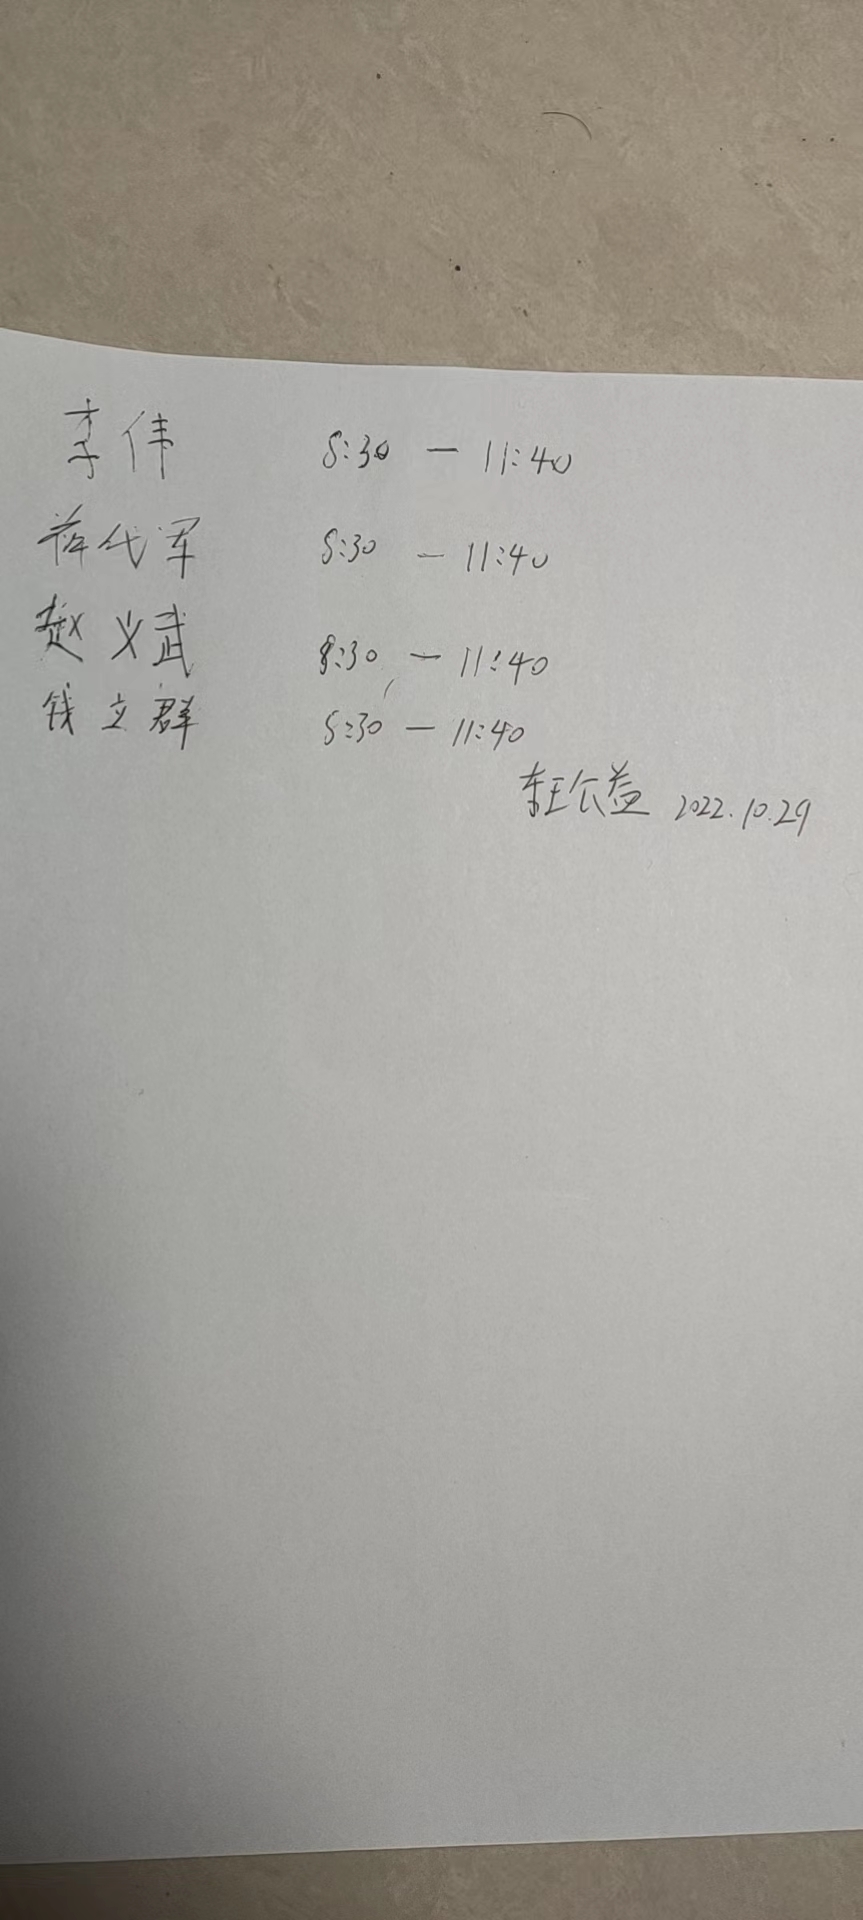 李伟 8:30 — 11:40
蒋代军 8:30 — 11:40
赵义斌 8:30 — 11:40
钱立群 8:30 — 11:40
公益 2022.10.29